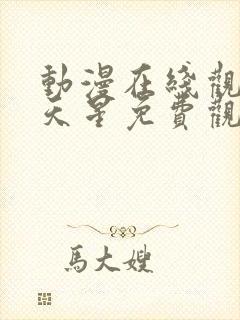 動漫在綫觀
天星免費觀
馬大嫂